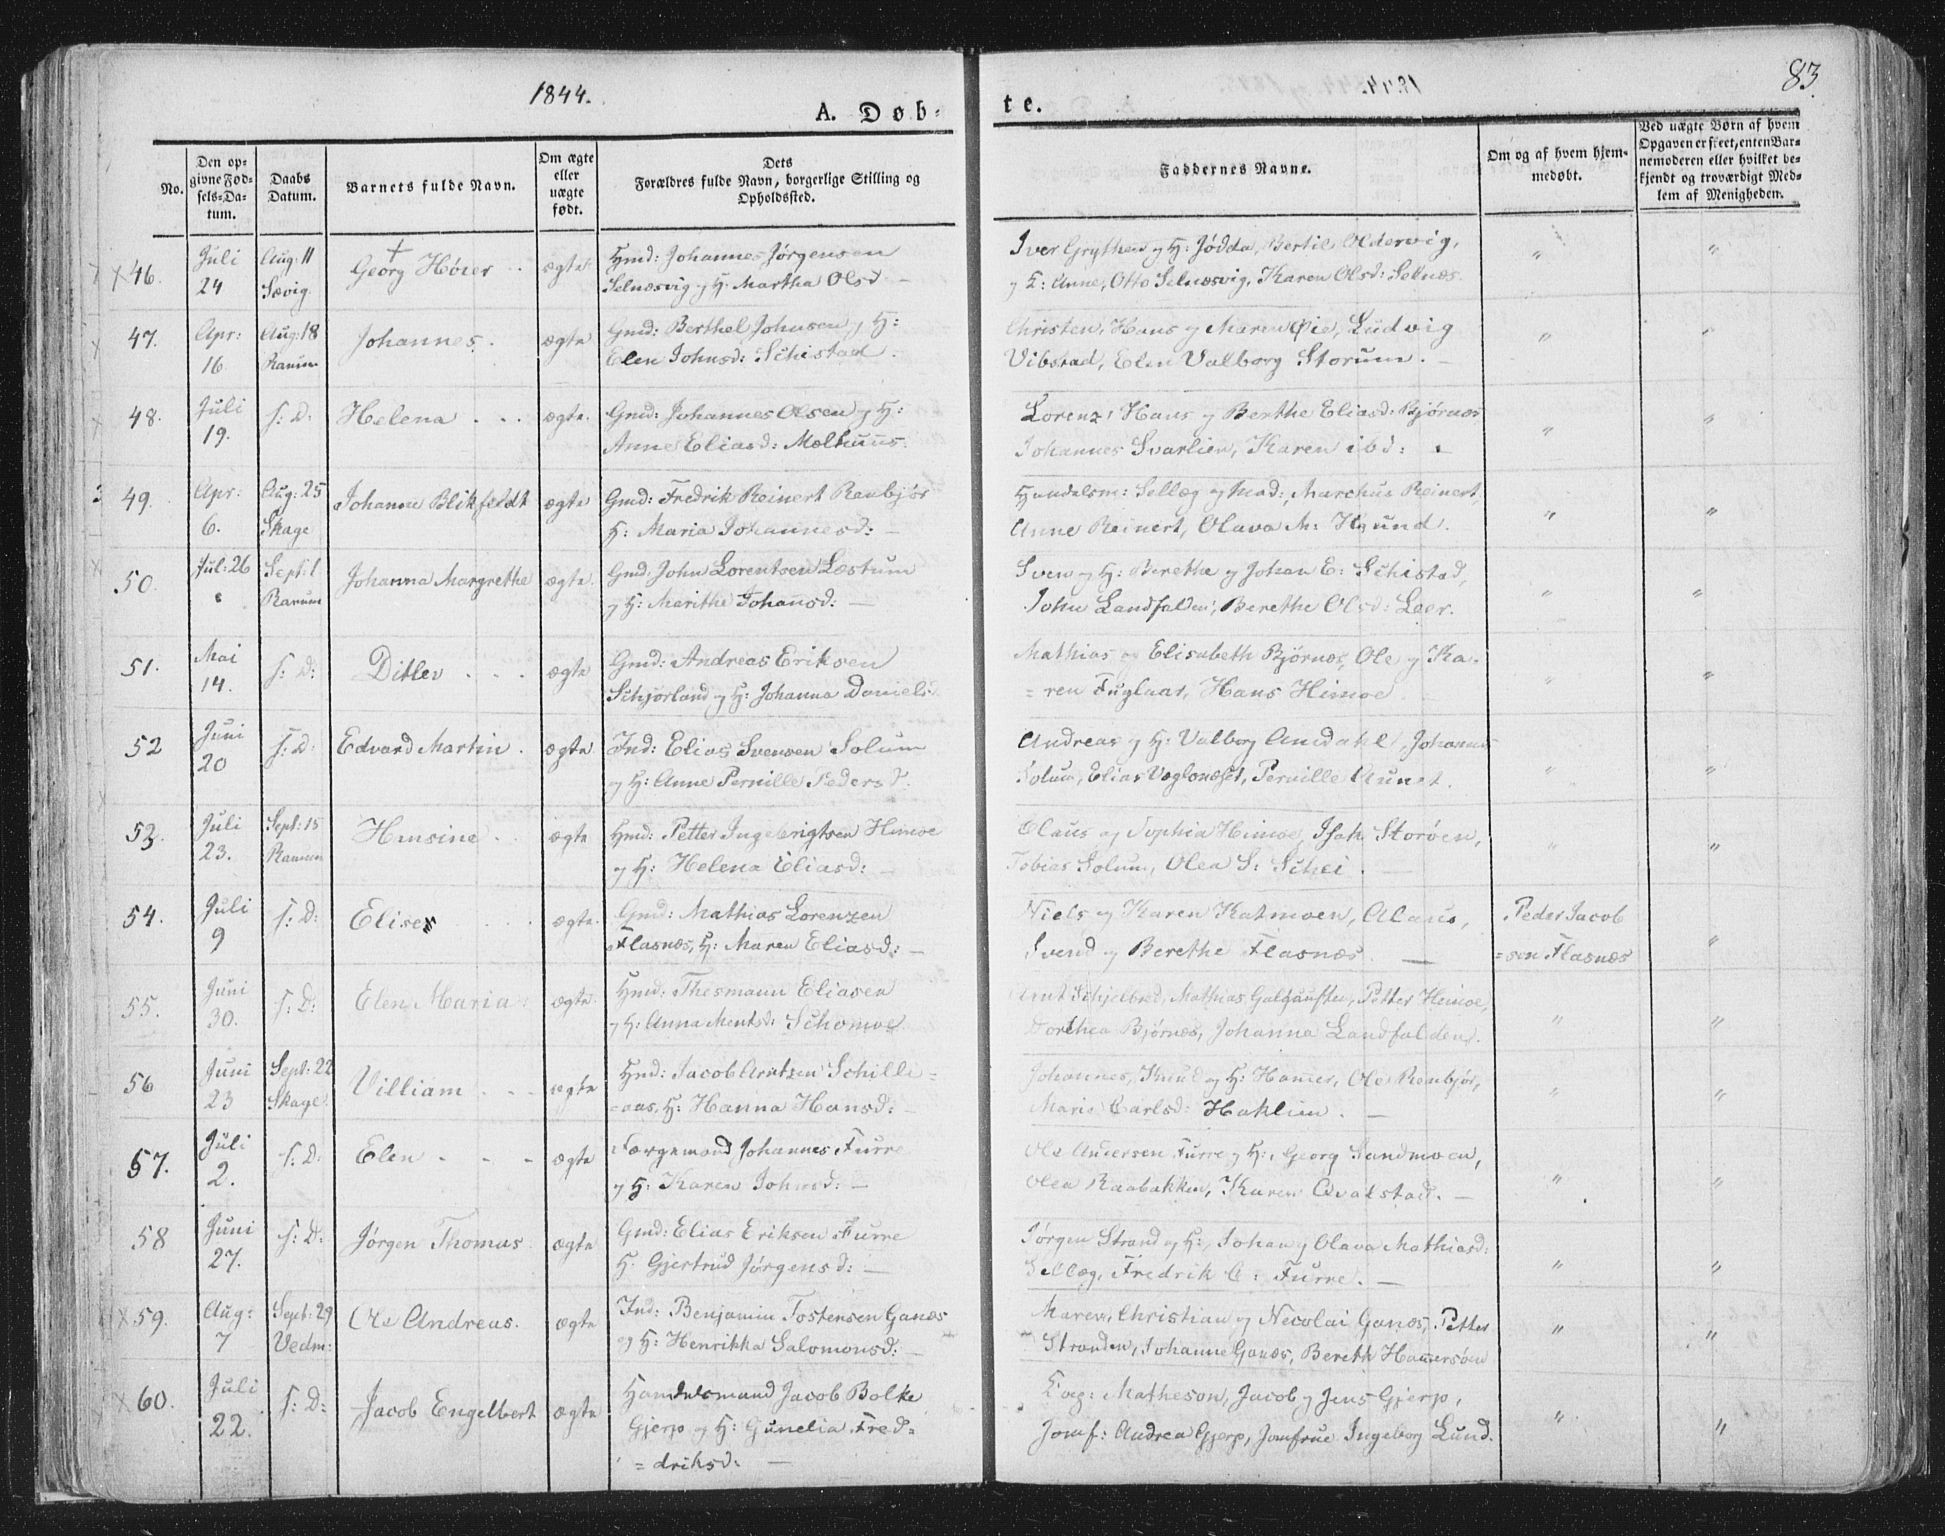 1844.
A. Døb-
te.
83.
No.
Den op-
givne Fød-
sels-Da-
tum.
Daabs
Datum.
Barnets fulde Navn.
Om ægte
eller
uægte
født.
Dets
Forældres fulde Navn, borgerlige Stilling og
Opholdssted.
Faddernes Navne.
Om og af hvem hjem-
medøbt.
Ved uægte Børn af hvem
Opgaven er skeet, enten Bar-
nemoderen eller hvilket be-
kjendt og troværdigt Med-
lem af Menigheden.
46. Juli 24 Aug: 11 Sævig Georg Høier ægte
Hmd: Johannes Jørgensen
Selnæsvig og H. Martha Olsd
Iver Grythen og H: Jødda, Bertil Oldervig,
Anne, Otto Selnæsvig, Karen Olsd: Selnæs
47. Apr: 16 Aug: 18 Ranum Johannes. ægte
Gmd: Berthel Johnsen og H:
Elen Johnsd: Schistad
Christen, Hans og Maren Øie, Ludvig
Vibstad, Elen Valborg Storum.
48. Juli 19. s: D: Helena ægte
Gmd: Johannes Olsen og H:
Anne Eliasd: Mælhuus.
Lorenz, Hans og Berthe Eliasd: Bjørnæs
Johannes Svarlien, Karen ibd:
49. Apr: 6. Aug: 25 Skage Johanna Blikfeldt ægte
Gmd: Fredrik Reinert Renbjør
H: Maria Johannesd:
Handelsm: Sellæg og Mad:, Marchus Reinert,
Anne Reinert, Olava M:
50. Jul: 26 Sept: 1 Ranum Johanna Margrethe ægte
Gmd, John Lorentsen Læstum
og H: Marithe Johansd:
Sven og H: Berethe og Johan E: Schistad,
John Landfalden, Berethe Olsd: Leer.
51. Mai 14. s: D: Ditlev ægte
Gmd: Andreas Eriksen
Schjørland og H: Johanna Daniels:
Mathias og Elisabeth Bjørnæs, Ole og Ka-
=ren Fuglaar, Hans Himoe
52 Juni 20 s: D: Edvard Martin. ægte
Ind: Elias Svensen Solum
og H: Anne Pernille Pedersd.
Andreas og H: Valborg Amdahl, Johannes
Solum, Elias Veglonæset, Pernille Aunet.
53. Juli 23. Sept: 15 Ranum Hansine ægte
Hmd: Petter Ingebrigtsen Himoe
og H: Helena Eliasd:
Claus og Sophia Himoe, Isak Storøen,
Tobias Solum, Olea S: Schei.
54. Juli 9 s: D: Eliser ægte
Gmd: Mathias Lorenzen
Flasnæs, H: Maren Eliasd:
Niels og Karen Katmoen, Claus,
Svend og Berethe Flasnæs.
Peder Jacob
=sen Flasnæs
55. Juni 30. s: D: Elen Maria ægte
Hmd: Thesmann Eliasen
og H: Anna Mentsd: Schomoe
Arnt Schjelbred, Mathias Galguusten, Petter Himoe,
Dorthea Bjørnæs, Johanna Landfalden.
56 Juni 23 Sept: 22 Skage Villiam ægte
Hmd: Jacob Arntzen Schille=
=aas, H: Hanna Hansd:
Johannes, Knud og H: Hamer, Ole Renbjør,
Maria Carlsd: Haklien.
57. Juli 2. s: D: Elen ægte
Færgemand Johannes Furre
og H: Karen Johnsd:
Ole Andersen Furre og H:, Georg Sandmoen,
Olea Raabakken, Karen Qvatstad.
58 Juni 27. s: D: Jørgen Thomas ægte
Gmd: Elias Eriksen Furre
H. Gjertrud Jørgensd:
Jørgen Strand og H:, Johan og Olava Mathiasd:
Sellæg, Fredrik C: Furre.
59. Aug: 7 Sept: 29 Vedm: Ole Andreas. ægte
Ind: Benjamin Tostensen Ganæs
og H: Henrikka Salomonsd:
Maren, Christian og Necolai Ganæs, Petter
Stranden, Johanne Ganæs, Bereth Hamersøen
60. Juli 22. s: D: Jacob Engelbert ægte
Handelsmand Jacob Bolke
Gjerp og H: Gunelia Fred=
=driksd:
Matheson, Jacob og Jens Gjerp,
Jomf: Andrea Gjerp, Jomfrue Ingeborg Lund.